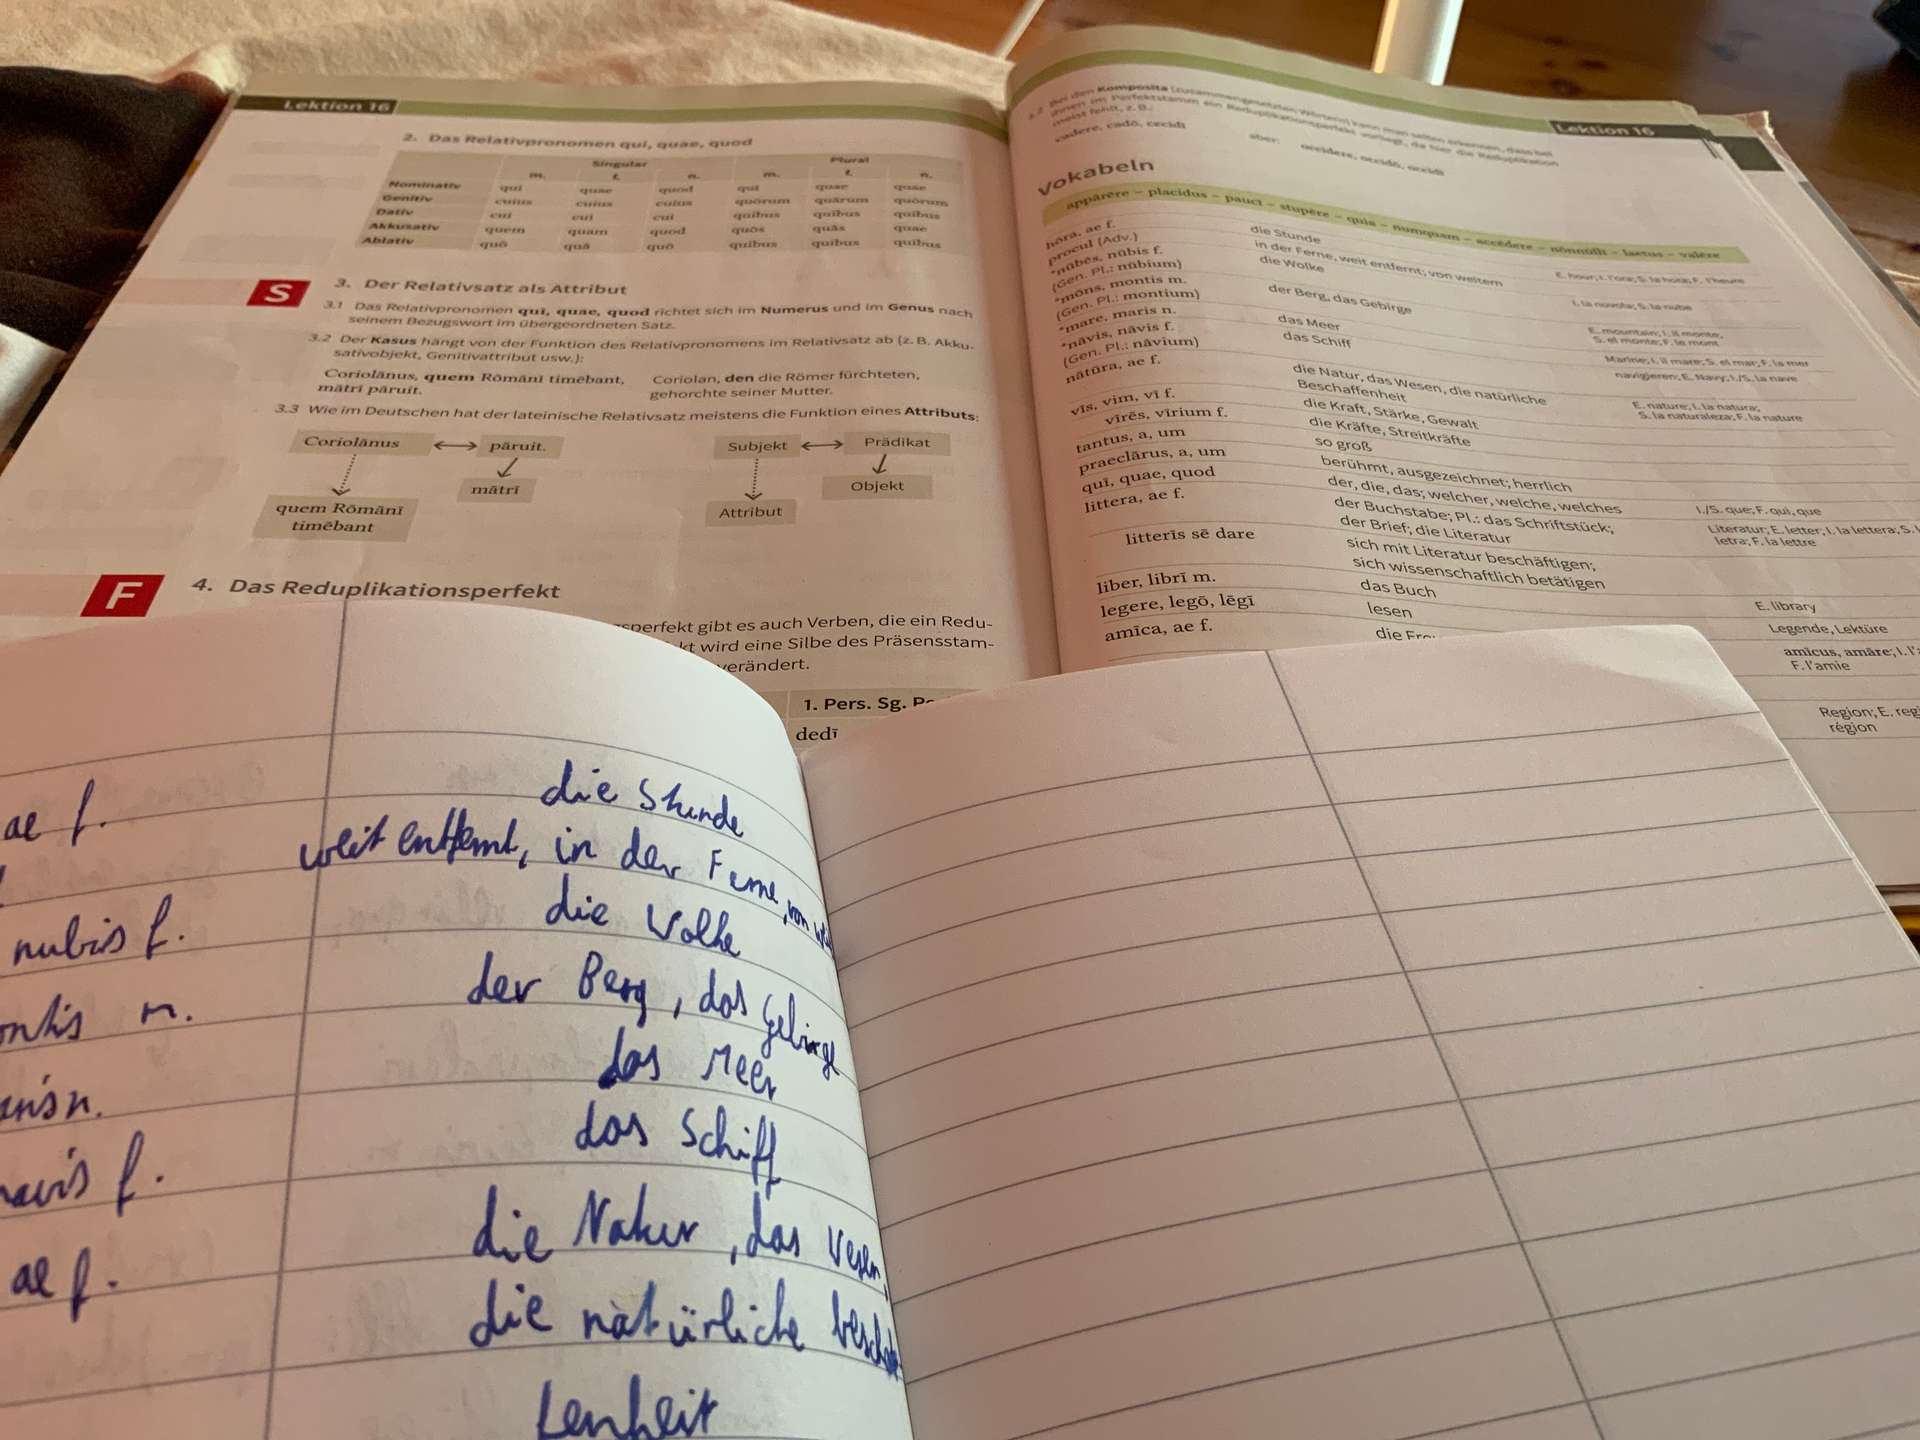 Lektion 16
2. Das Relativpronomen qui, quae, quod
Singular Plural
m. f. n. m. f. n.
Nominativ quī quae quod quī quae quae
Genitiv cuius cuius cuius quōrum quārum quōrum
Dativ cui cui cui quibus quibus quibus
Akkusativ quem quam quod quōs quās quae
Ablativ quō quā quō quibus quibus quibus
S
3. Der Relativsatz als Attribut
3.1 Das Relativpronomen quī, quae, quod richtet sich im Numerus und im Genus nach
seinem Bezugswort im übergeordneten Satz.
3.2 Der Kasus hängt von der Funktion des Relativpronomens im Relativsatz ab (z. B. Akku-
sativobjekt, Genitivattribut usw.):
Coriolānus, quem Rōmānī timēbant, Coriolan, den die Römer fürchteten,
mātrī pāruit. gehorchte seiner Mutter.
3.3 Wie im Deutschen hat der lateinische Relativsatz meistens die Funktion eines Attributs:
Coriolānus pāruit. Subjekt Prädikat
mātrī Objekt
quem Rōmānī Attribut
timēbant
F
4. Das Reduplikationsperfekt
perfekt gibt es auch Verben, die ein Redu-
wird eine Silbe des Präsensstam-
verändert.
1. Pers. Sg.
dedī
Lektion 16
Bei den Komposita (zusammengesetzten Wörtern) kann man selten erkennen, dass bei
ihnen im Perfektstamm ein Reduplikationsperfekt vorliegt, da hier die Reduplikation
meist fehlt, z. B.:
cadere, cadō, cecidī aber: occidere, occidō, occidī
Vokabeln
appārēre – placidus – paucī – stupēre – quia – numquam – accēdere – nōnnūllī – laetus – valēre
hōra, ae f. die Stunde E. hour; I. l'ora; S. la hora; F. l'heure
procul (Adv.) in der Ferne, weit entfernt; von weitem
*nūbēs, nūbis f. die Wolke I. la nuvola; S. la nube
(Gen. Pl.: nūbium)
*mōns, montis m. der Berg, das Gebirge E. mountain; I. il monte;
(Gen. Pl.: montium) S. el monte; F. le mont
*mare, maris n. das Meer Marine; I. il mare; S. el mar; F. la mer
*nāvis, nāvis f. das Schiff navigieren; E. Navy; I./S. la nave
(Gen. Pl.: nāvium)
nātūra, ae f. die Natur, das Wesen, die natürliche E. nature; I. la natura;
Beschaffenheit S. la naturaleza; F. la nature
vīs, vim, vī f. die Kraft, Stärke, Gewalt
vīrēs, vīrium f. die Kräfte, Streitkräfte
tantus, a, um so groß
praeclārus, a, um berühmt, ausgezeichnet; herrlich
quī, quae, quod der, die, das; welcher, welche, welches I./S. que; F. qui, que
littera, ae f. der Buchstabe; Pl.: das Schriftstück; Literatur; E. letter; I. la lettera; S.
der Brief; die Literatur letra; F. la lettre
litterīs sē dare sich mit Literatur beschäftigen;
sich wissenschaftlich betätigen
liber, librī m. das Buch E. library
legere, legō, lēgī lesen Legende, Lektüre
amīca, ae f. die amīcus, amāre;
F. l'amie
Region; E.
région
ae f. die Stunde
weit entfernt, in der Ferne, von
nubis f. die Wolke
m. der Berg, das Gebirge
n. das Meer
f. das Schiff
ae f. die Natur, das Wesen,
die natürliche